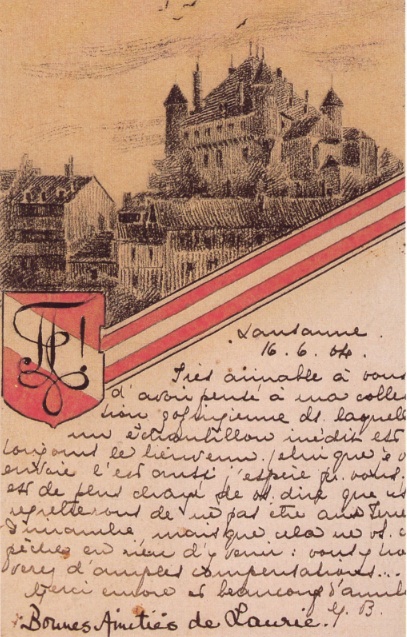 Lausanne.
16. 6. 04.
Très aimable à vous
d'avoir pensé à ma collec
tion zofingienne ds. laquelle
un échantillon inédit est
toujours le bienvenu.
envoie l'est aussi j'espère pr. vous,
est de plus chargé de vs. dire que
regretterons de ne pas être aux
Dimanche mais que cela ne vs.
pêche en rien d'y venir : vous y trou
verez d'amples compensations...
Merci encore et beaucoup d'amit
G. B.
Bonnes Amitiés de Laurie.